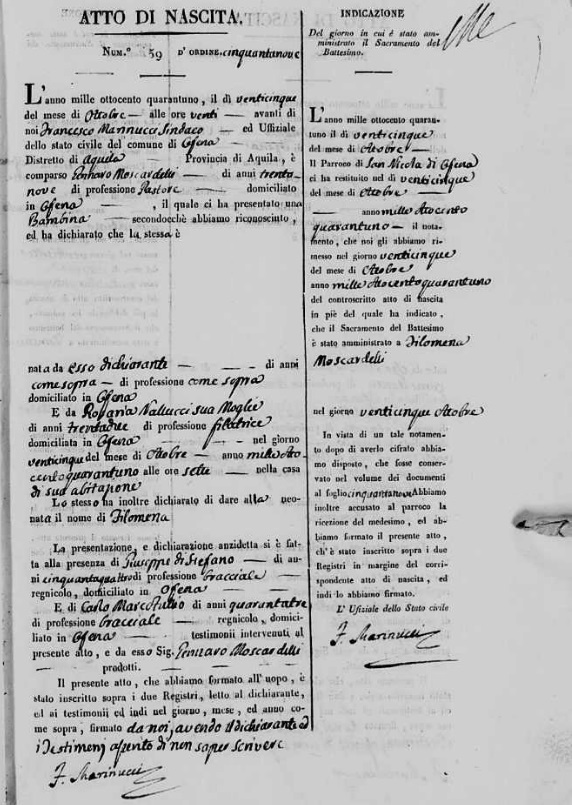 ATTO DI NASCITA.
Num.° 59 D'ORDINE cinquantanove
L'anno mille ottocento quarantuno, il dì venticinque
del mese di Ottobre — alle ore venti — avanti di
noi Francesco Marinucci Sindaco — ed Uffiziale
dello stato civile del comune di Ofena —
Distretto di Aquila Provincia di Aquila, è
comparso Gennaro Moscardelli — di anni trenta-
nove di professione Pastore — domiciliato
in Ofena —, il quale ci ha presentato una
Bambina — secondocchè abbiamo riconosciuto,
ed ha dichiarato che la stessa è
nata da esso dichiarante — di anni
come sopra — di professione come sopra
domiciliato in Ofena
E da Rosaria Vallucci sua Moglie
di anni trentadue di professione filatrice
domiciliata in Ofena — nel giorno
venticinque del mese di Ottobre — anno mille Otto
cento quarantuno alle ore sette — nella casa
di sua abitazione
Lo stesso ha inoltre dichiarato di dare alla neo-
nata il nome di Filomena
La presentazione, e dichiarazione anzidetta si è fat-
ta alla presenza di Giuseppe di Stefano — di an-
ni cinquantaquattro di professione bracciale —
regnicolo, domiciliato in Ofena —
E di Carlo Marco di anni quarantatre
di professione bracciale — regnicolo, domici-
liato in Ofena — testimonii intervenuti al
presente atto, e da esso Sig. Gennaro Moscardelli
— prodotti. —
Il presente atto, che abbiamo formato all'uopo, è
stato inscritto sopra i due Registri, letto al dichiarante,
ed ai testimonii ed indi nel giorno, mese, ed anno co-
me sopra, firmato da noi, avendo il dichiarante ed
i Testimonj asserito di non saper scrivere
F. Marinucci
INDICAZIONE
Del giorno in cui è stato am-
ministrato il Sacramento del
Battesimo.
L'anno mille ottocento quaran-
tuno il dì venticinque
del mese di Ottobre —
Il Parroco di San Nicola di Ofena
ci ha restituito nel dì venticinque
del mese di Ottobre —
— anno mille Ottocento
quarantuno — il nota-
mento, che noi gli abbiamo ri-
messo nel giorno venticinque
del mese di Ottobre
anno mille Ottocento quarantuno
del controscritto atto di nascita
in piè del quale ha indicato,
che il Sacramento del Battesimo
è stato amministrato a Filomena
Moscardelli
nel giorno venticinque Ottobre
In vista di un tale notamen-
to dopo di averlo cifrato abbia-
mo disposto, che fosse conser-
vato nel volume dei documenti
al foglio cinquantanove Abbiamo
inoltre accusato al parroco la
ricezione del medesimo, ed ab-
biamo formato il presente atto,
ch'è stato inscritto sopra i due
Registri in margine del corri-
spondente atto di nascita, ed
indi lo abbiamo firmato.
L' Ufiziale dello Stato civile
F. Marinucci